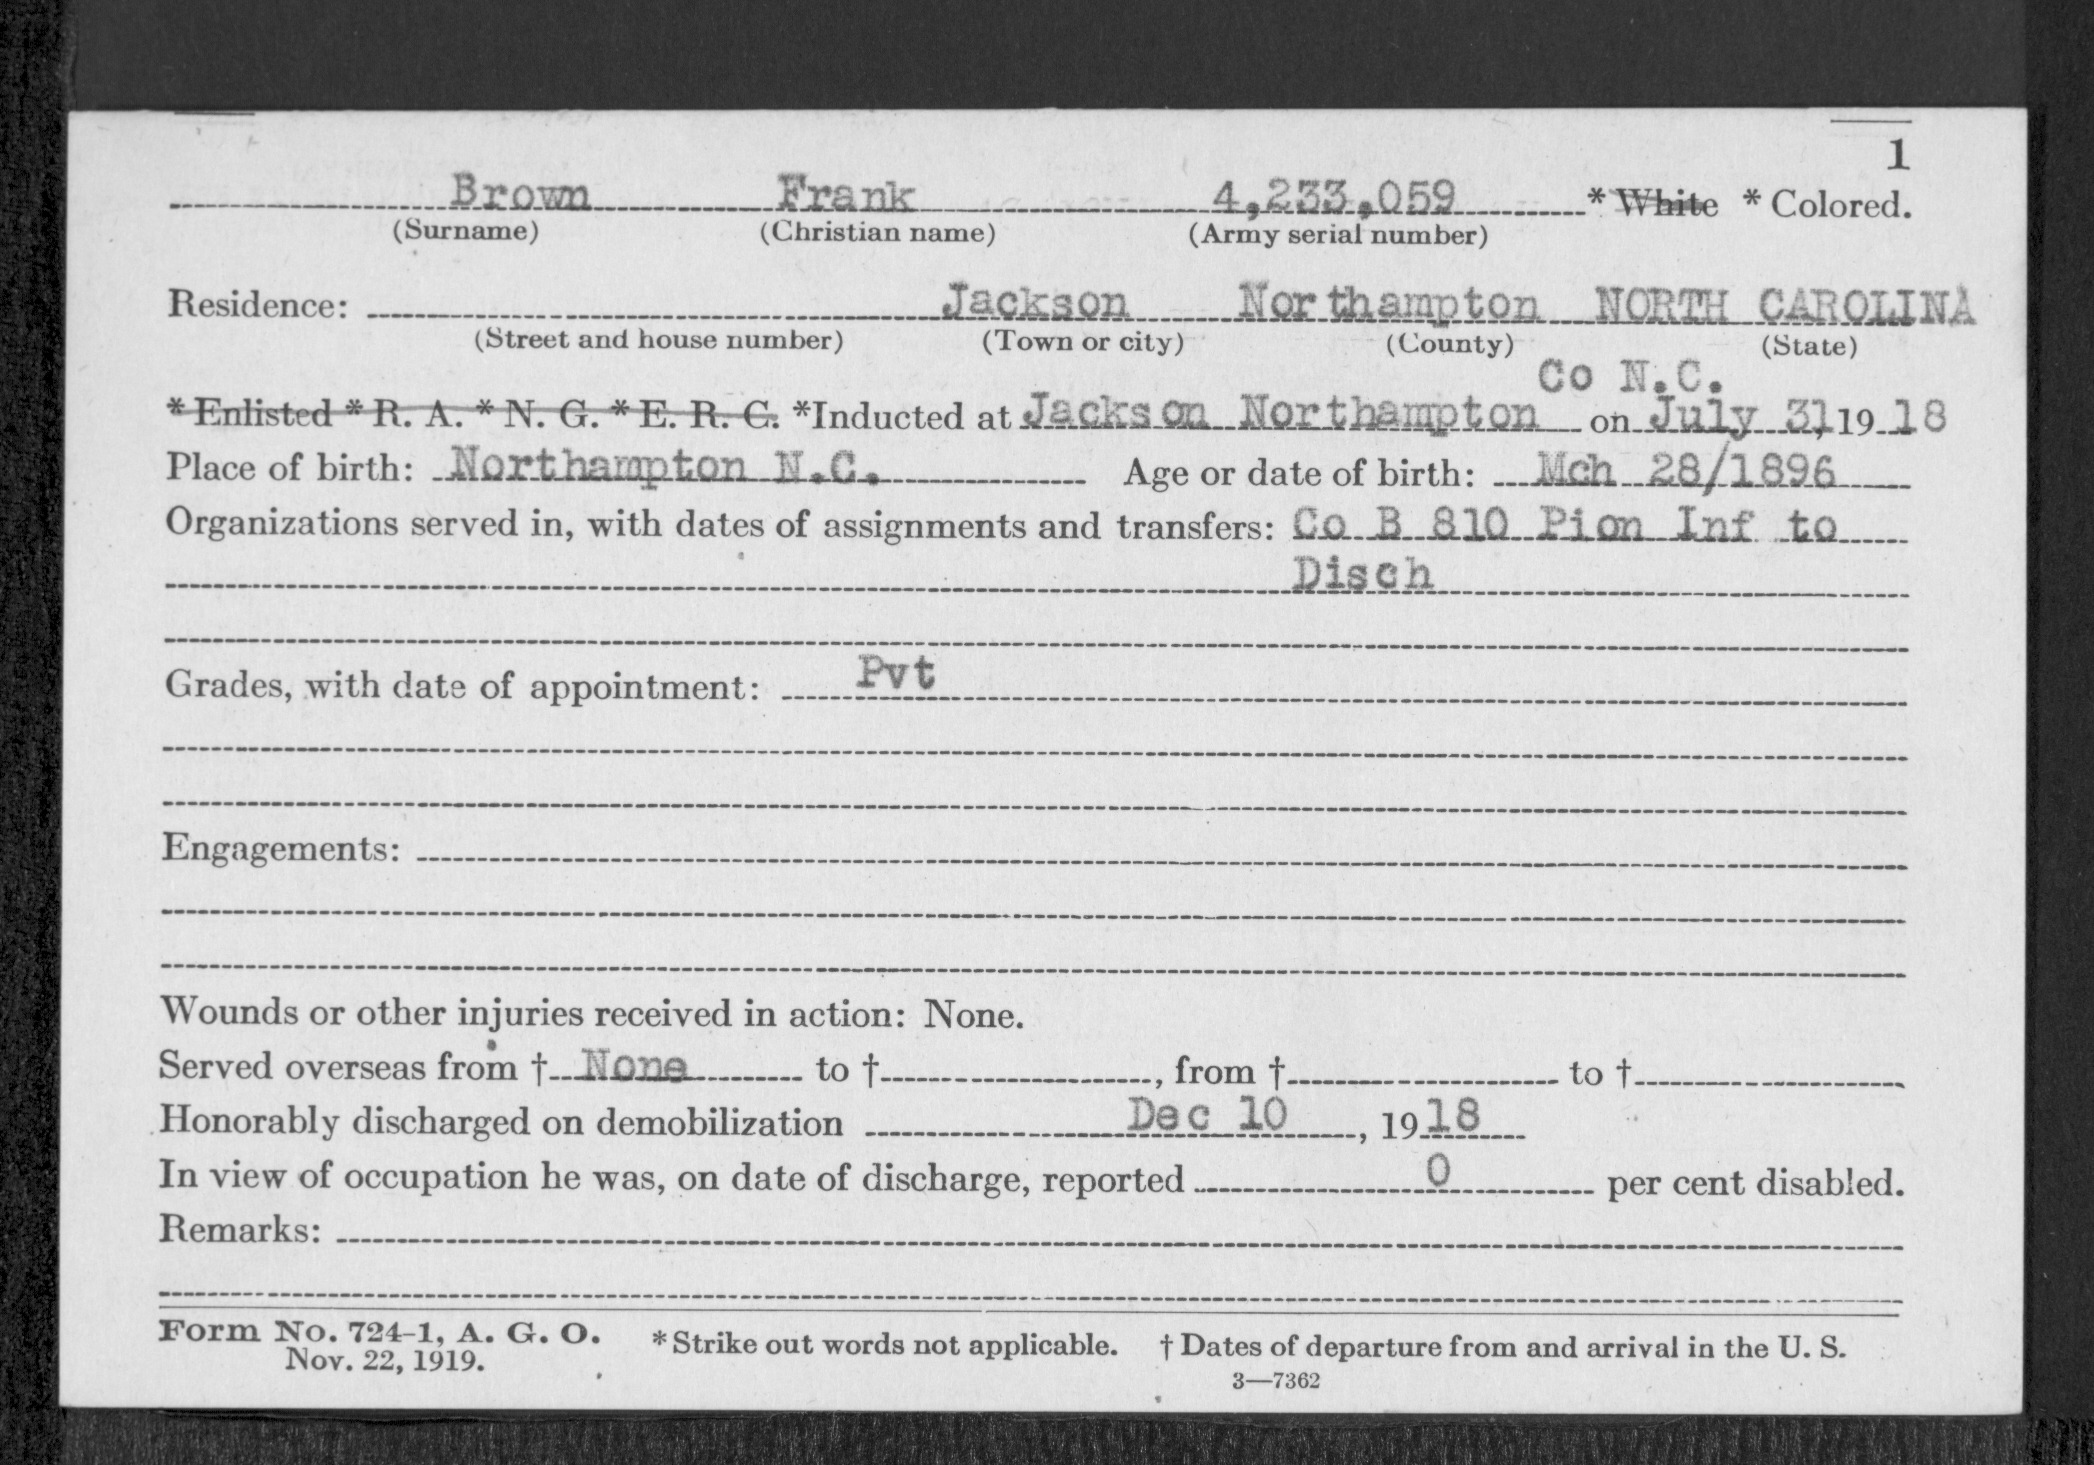 1
Brown Frank 4,233,059 * White * Colored.
(Surname) (Christian name) (Army serial number)
Residence: Jackson Northampton NORTH CAROLINA
(Street and house number) (Town or city) (County) (State)
Co N.C.
* Enlisted * R. A. * N. G. * E. R. C. *Inducted at Jackson Northampton on July 31, 19 18
Place of birth: Northampton N.C. Age or date of birth: Mch 28/1896
Organizations served in, with dates of assignments and transfers: Co B 810 Pion Inf to
Disch
Grades, with date of appointment: Pvt
Engagements:
Wounds or other injuries received in action: None.
Served overseas from † None to †, from † to †
Honorably discharged on demobilization Dec 10, 19 18
In view of occupation he was, on date of discharge, reported 0 per cent disabled.
Remarks:
Form No. 724-1, A. G. O. * Strike out words not applicable. † Dates of departure from and arrival in the U. S.
Nov. 22, 1919.
3—7362